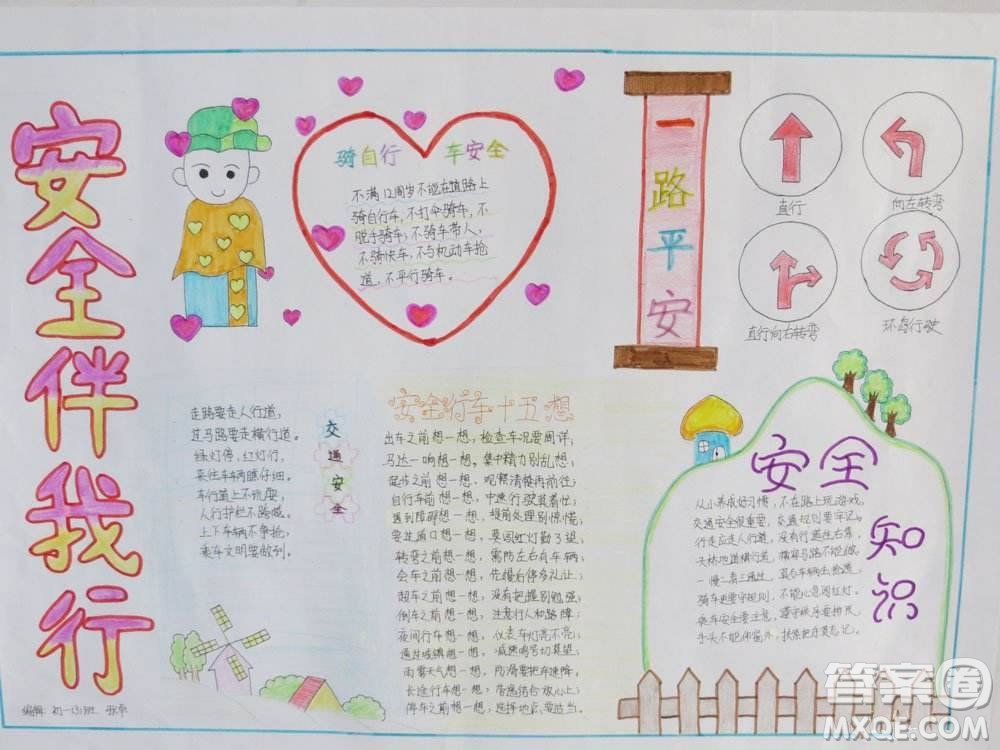 安全伴我行
骑自行车安全
不满12周岁不能在道路上
骑自行车,不打伞骑车,不
脱手骑车,不骑车带人,
不骑快车,不与机动车抢
道,不平行骑车。
一路平安
直行
向左转弯
直行向右转弯
环岛行驶
走路要走人行道,
过马路要走横行道。
绿灯停,红灯行,
来往车车辆瞧仔细。
车行道上不玩耍,
人行护栏不跨越。
上下车辆不争抢,
乘车文明要做到。
交通安全
安全行车十五想
出车之前想一想,检查车况要周详,
马达一响想一想。集中精力别乱想,
起步之前想一想,观察清楚再前往。
自行车前想一想,中速行驶莫着忙;
遇到障碍想一想,提前处理别惊慌;
转弯之前想一想,需防左右有车辆,
会车之前想一想,先慢后停多礼让;
超车之前想一想,没有把握别勉强;
倒车之前想一想,注意行人和路障;
夜间行车想一想,仪表车灯亮不亮;
通过城镇想一想,减速鸣号切莫忘;
雨雾天气想一想,防滑要把车速降,
长途行车想一想,
停车之前想一想,选择地点要适当。
安全知识
从小养成好习惯,不在路上玩游戏。
交通安全很重要,交通规则要牢记。
行走应走人行道,没有行道往右靠。
天桥地道横行道,横穿马路不能做。
一慢二看三通过,莫与车辆去抢道。
骑车更要守规则,不能心急闯红灯。
乘车安全要注意,遵守秩序要排队。
手头不能伸窗外,扶紧把手莫忘记。
编辑:初一(3)班
答案圈
MXQE.COM